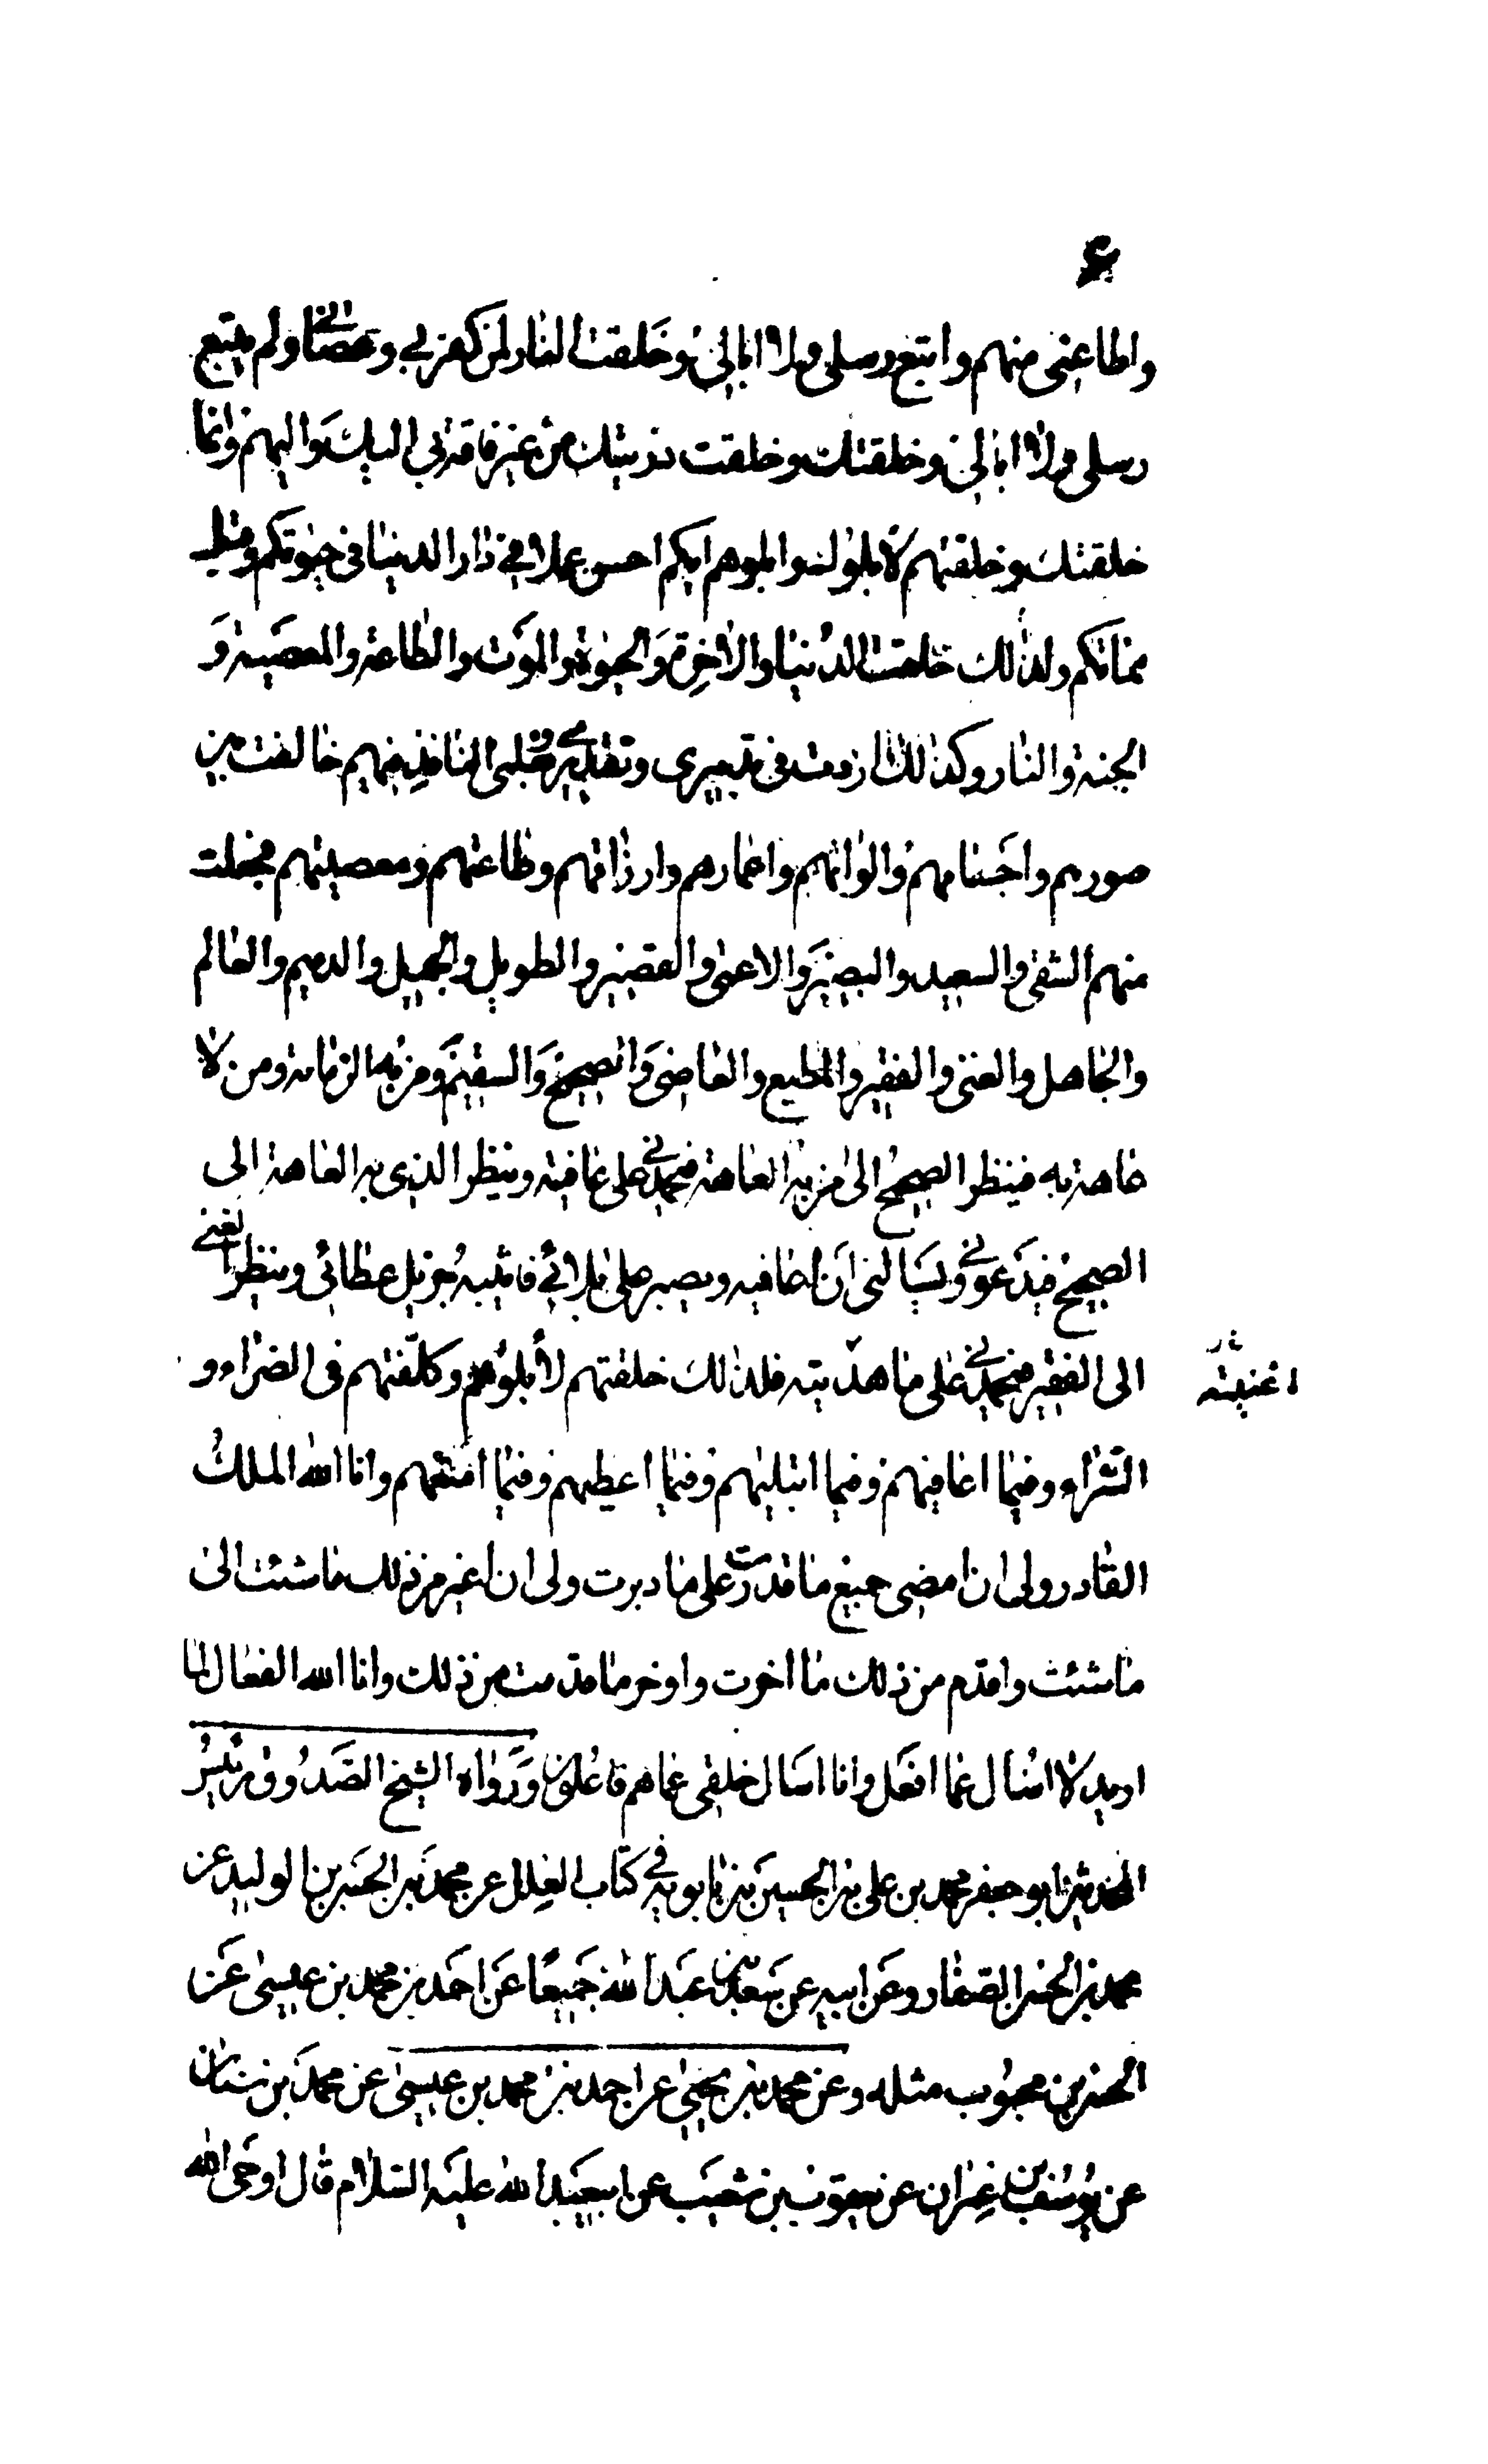 ۶
واطاعنی منهم واتبع رسلی ولا ابالی وخلقت النار لمن کفر بی وعصانی ولم یتبع
رسلی ولا ابالی وخلقتک وخلقت ذریتک من غیر فاقة بی الیک والیهم وانما
خلقتک وخلقتهم لابلوک وابلوهم ایکم احسن عملا فی دار الدنیا فی حیوتکم وقبل
مماتکم ولذلک خلقت الدنیا والاخرة والحیوة والموت والطاعة والمعصیة و
الجنة والنار وکذلک اردت فی تدبیری وتقدیری وعلمی النافذ فیهم خالفت بین
صورهم واجسامهم والوانهم واعمارهم وارزاقهم وطاعتهم ومعصیتهم فجعلت
منهم الشقی والسعید والبصیر والاعمی والقصیر والطویل والجمیل والدمیم والعالم
والجاهل والغنی والفقیر والمطیع والعاصی والصحیح والسقیم ومن به الزمانة ومن لا
عاهة به فینظر الصحیح الی من به العاهة فیحمدنی علی عافیته وینظر الذی به العاهة الی
الصحیح فیدعونی ویسالنی ان اعافیه ویصبر علی بلائی فاثیبه جزیل عطائی وینظر الغنی
الی الفقیر فیحمدنی علی ما هدیته فلذلک خلقتهم لابلوهم وکلفتهم فی الضراء و
السراء وفیما اعافیهم وفیما ابتلیهم وفیما اعطیهم وفیما امنعهم وانا الله الملک
القادر ولی ان امضی جمیع ما قدرت علی ما دبرت ولی ان اغیر من ذلک ما شئت الی
ما شئت واقدم من ذلک ما اخرت واوخر ما قدمت من ذلک وانا الله الفعال لما
ارید لا اسال عما افعل وانا اسال خلقی عما هم فاعلون ورواه الشیخ الصدوق رئیس
المحدثین ابو جعفر محمد بن علی بن الحسین بن بابویه فی کتاب العلل عن محمد بن الحسن بن الولید عن
محمد بن الحسن الصفار وعن ابیه عن سعد بن عبد الله جمیعا عن احمد بن محمد بن عیسی عن
الحسن بن محبوب مثله وعن محمد بن یحیی عن احمد بن محمد بن عیسی عن محمد بن سنان
عن یوسف بن عمران عن یعقوب بن شعیب عن ابی عبد الله علیه السلام قال اوحی الله